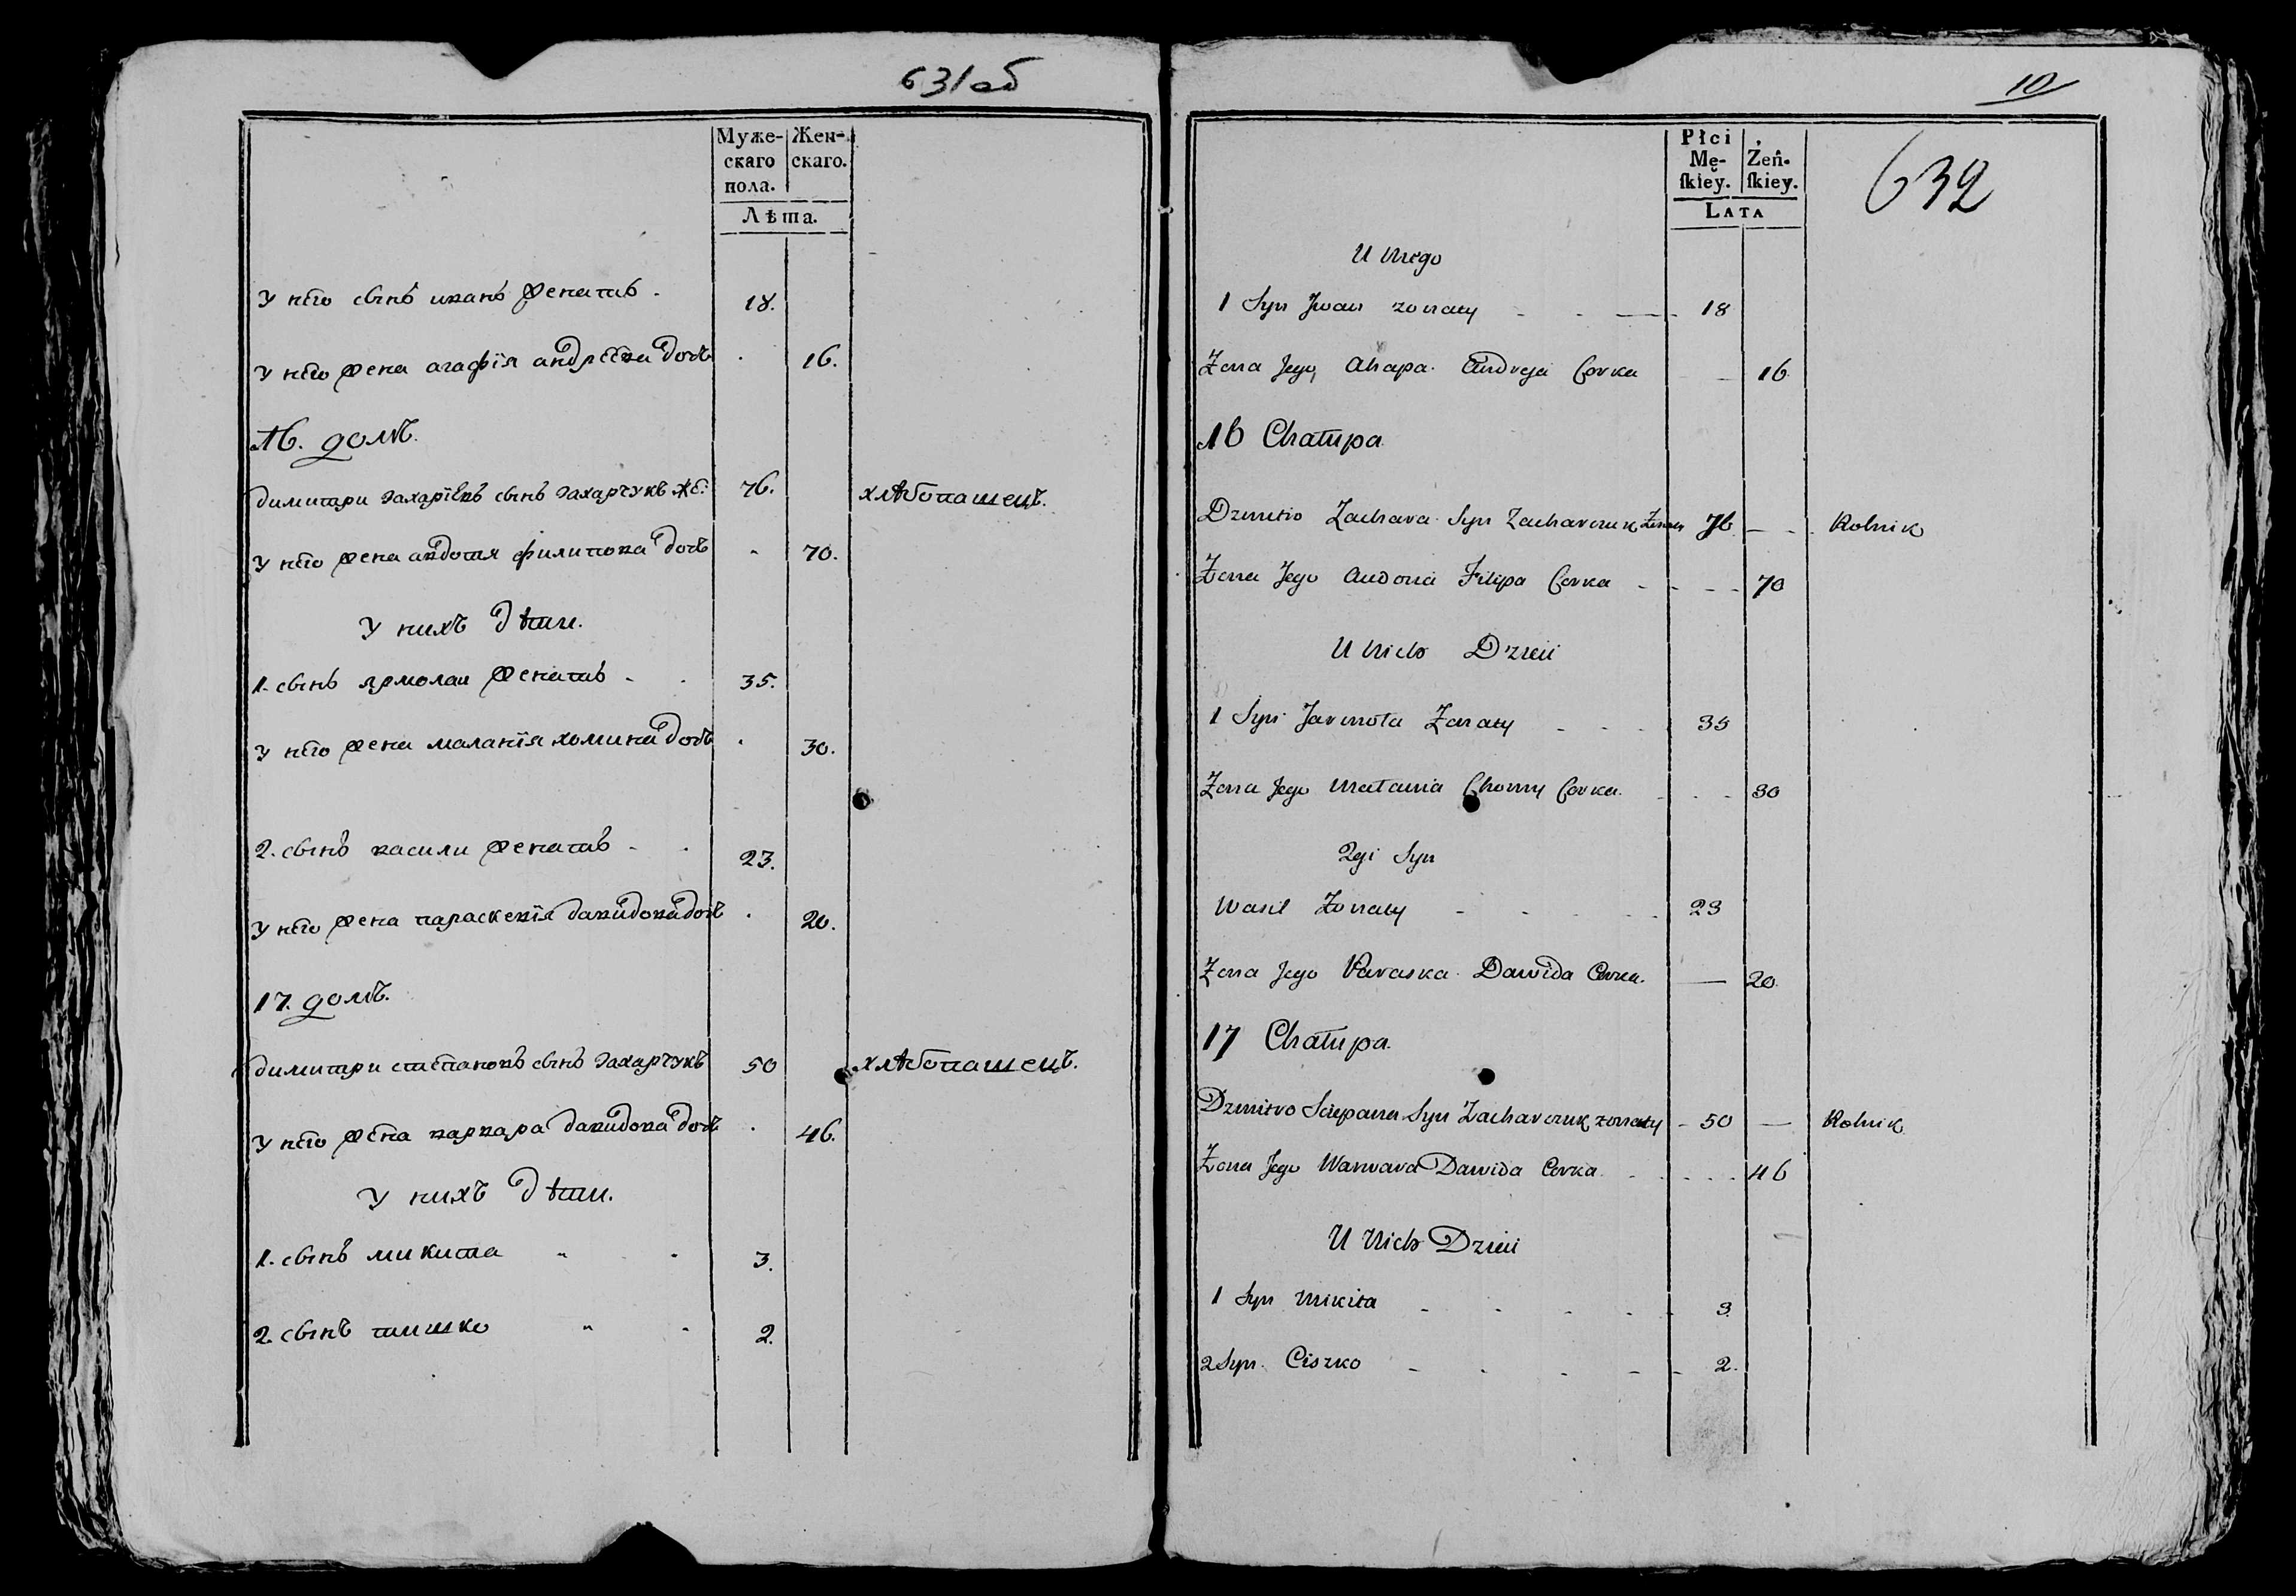 631об
Муже- Жен-
скаго скаго.
пола.
Лѣта.
У него сынъ иванъ женатъ . 18.
У него жена агафія андрѣева дочь . 16.
16. домъ.
димитри захаріевъ сынъ захарчукъ же: 76. хлѣбопашецъ.
У него жена авдотя филипова дочь - 70.
У нихъ дѣти.
1. сынъ ярмолаи женатъ - . 35.
У него жена маланія хомина дочь . 30.
2. сынъ васили женатъ - . 23.
У него жена параскевія давидова дочь . 20.
17. домъ.
димитри степановъ сынъ захарчукъ 50 хлѣбопашецъ.
У него жена варвара давидова дочь . 46.
У нихъ дѣти.
1. сынъ микита 3.
2. сынъ тишко 2.
10
632
Płci
Mę- Żeń-
skiey. skiey.
LATA
U Niego
1 Syn Jwan zonaty 18
Zona Jego Ahapa Andreja Corka 16
16 Chałupa
Dzmitro Zachara Syn Zacharczuk Zonaty 76 Rolnik
Zona Jego Audocia Filipa Corka 70
U Nich Dzieci
1 Syn Jarmoła Zonaty 35
Zona Jego Małania Chomy Corka 30
2gi Syn
Wasil Zonaty 23
Zona Jego Paraska Dawida Corka 20
17 Chałupa
Dzmitro Sciepana Syn Zacharczuk zonaty 50 Rolnik
Zona Jego Warwara Dawida Corka 46
U Nich Dzieci
1 Syn Mikita 3
2 Syn Ciszko 2